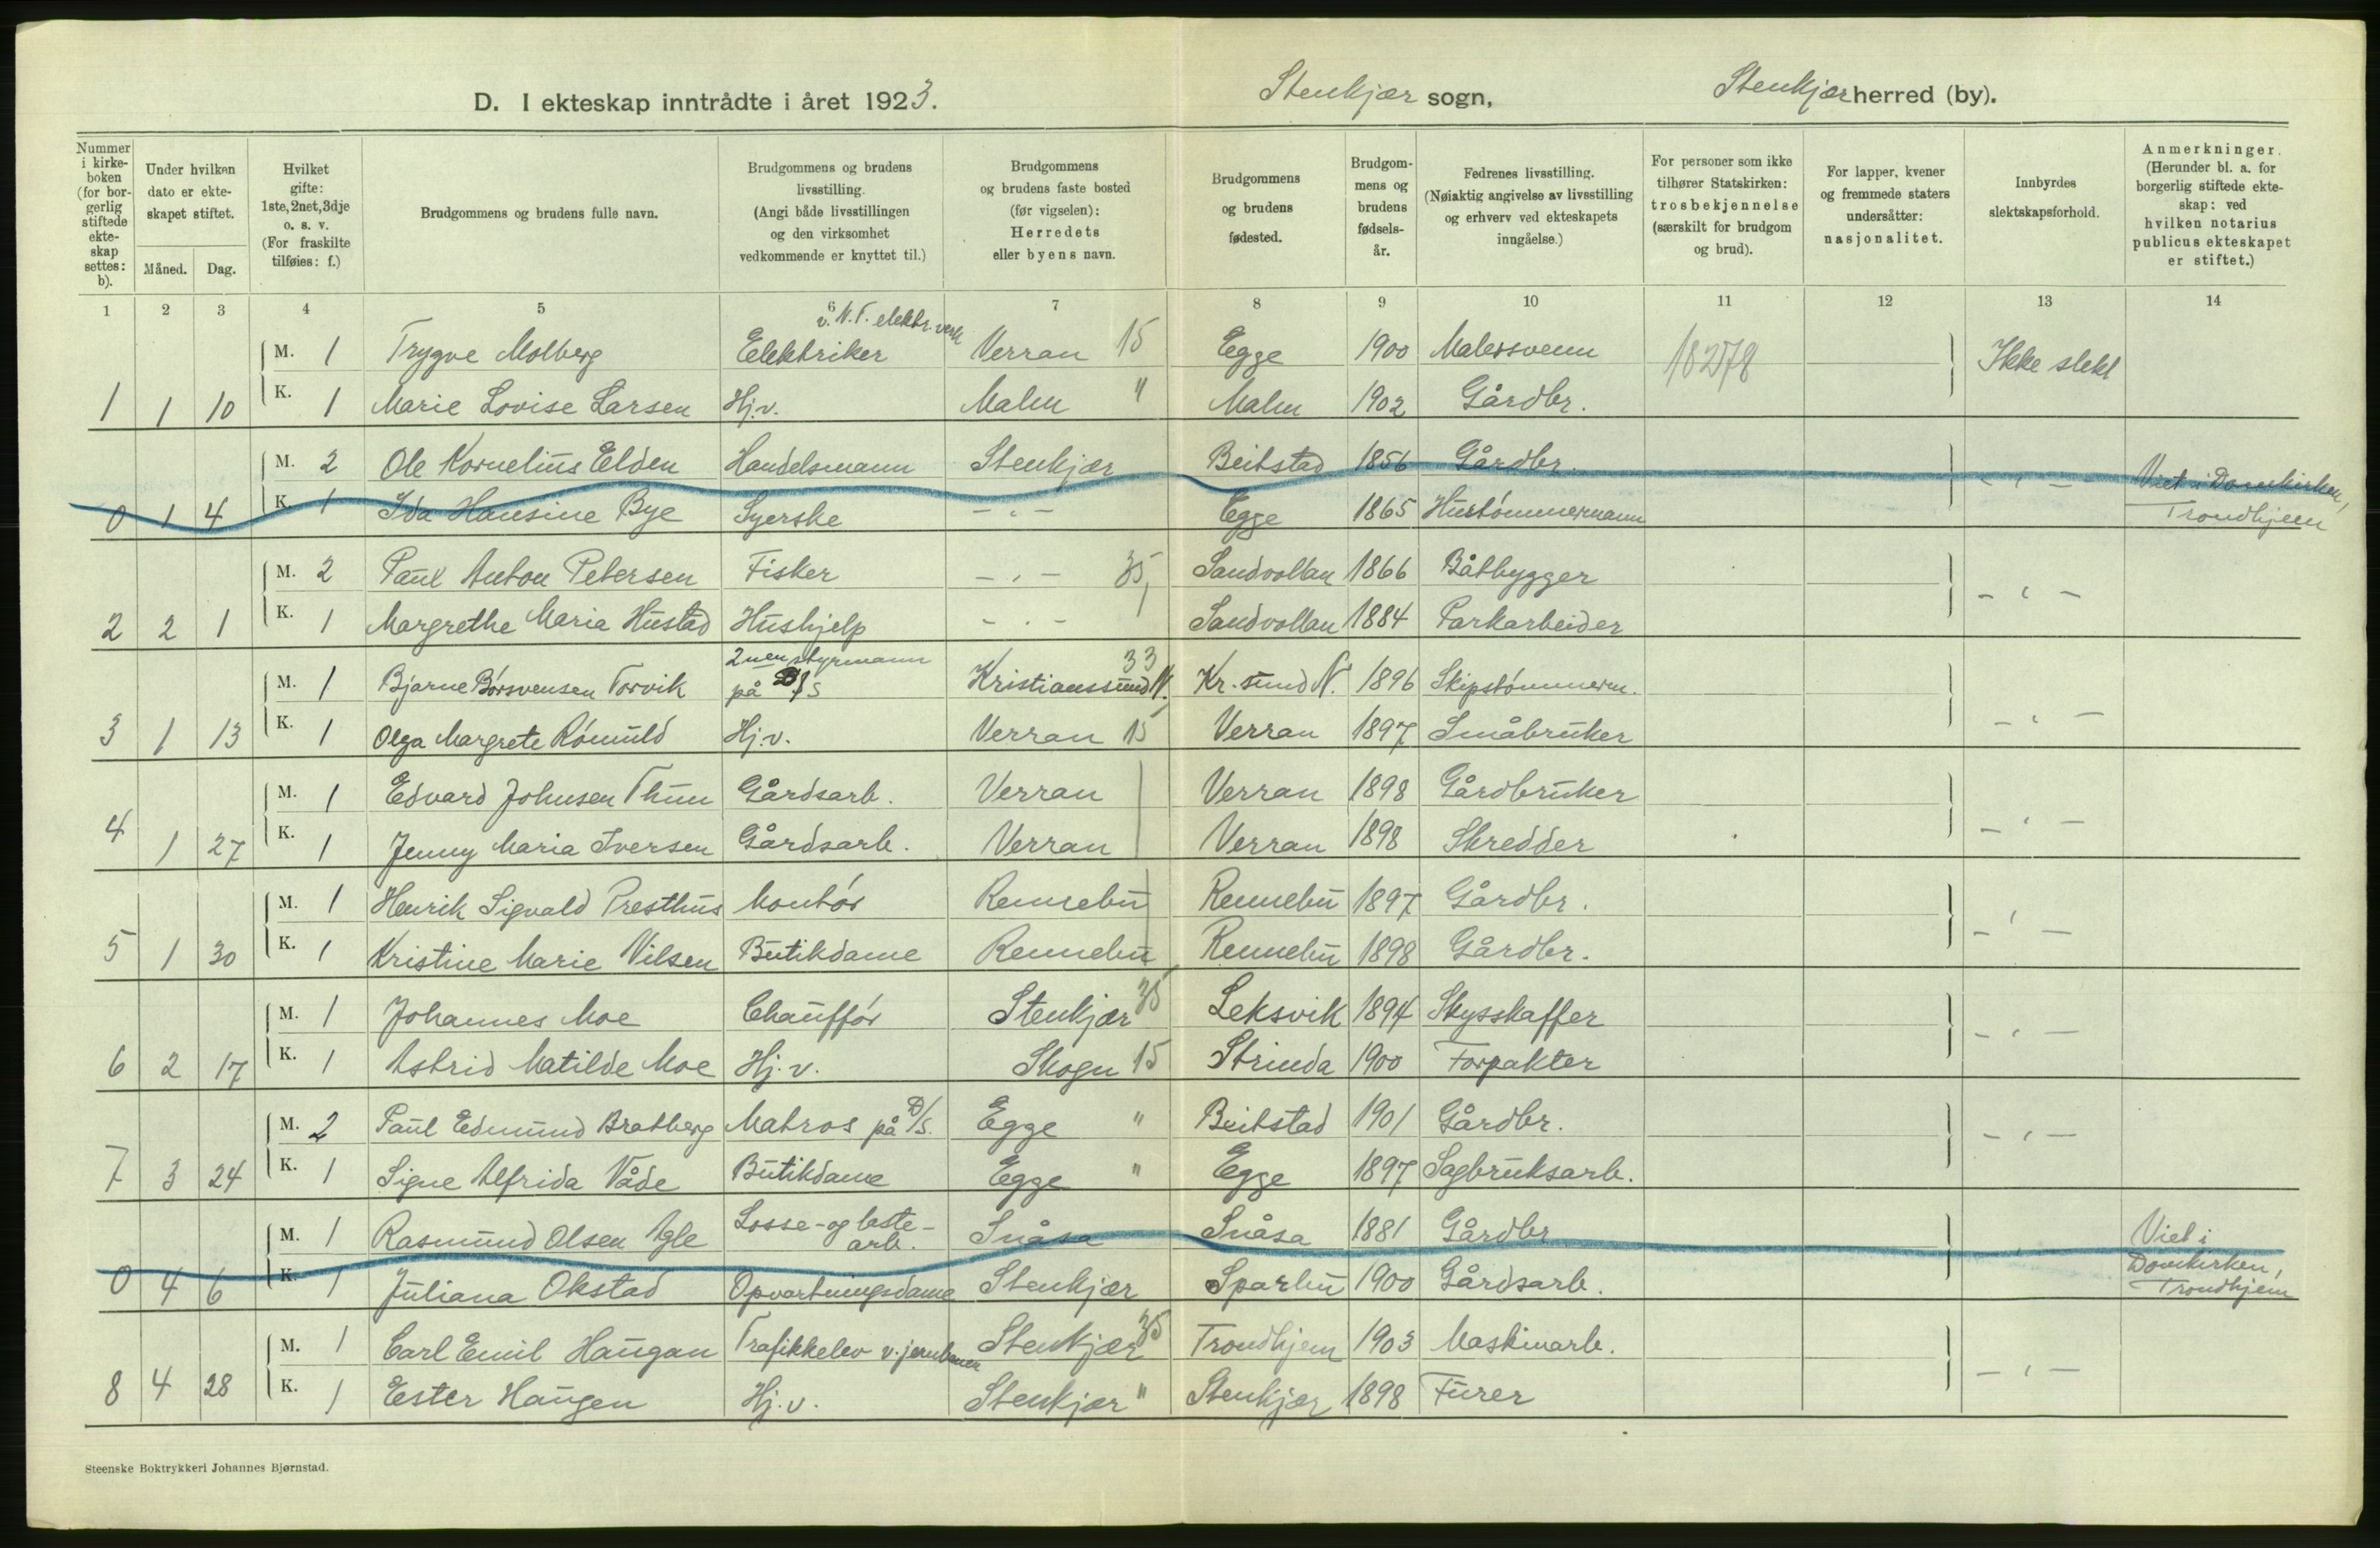 D. I ekteskap inntrådte i året 1923. Stenkjær sogn, Stenkjær herred (by).
Nummer i kirke-boken (for bor-gerlig stiftede ekte-skap settes: b).
Under hvilken dato er ekte-skapet stiftet.
Måned. Dag.
Hvilket gifte: 1ste, 2net, 3dje o. s. v. (For fraskilte tilføies: f.)
Brudgommens og brudens fulle navn.
Brudgommens og brudens livsstilling. (Angi både livsstillingen og den virksomhet vedkommende er knyttet til.)
Brudgommens og brudens faste bosted (før vigselen): Herredets eller byens navn.
Brudgommens og brudens fødested.
Brudgom-mens og brudens fødsels-år.
Fedrenes livsstilling. (Nøiaktig angivelse av livsstilling og erhverv ved ekteskapets inngåelse.)
For personer som ikke tilhører Statskirken: trosbekjennelse (særskilt for brudgom og brud).
For lapper, kvener og fremmede staters undersåtter: nasjonalitet.
Innbyrdes slektskapsforhold.
Anmerkninger. (Herunder bl. a. for borgerlig stiftede ekte-skap: ved hvilken notarius publicus ekteskapet er stiftet.)
1 2 3 4 5 6 7 8 9 10 11 12 13 14
v. N.T. elektr. verk
M. 1 Trygve Molberg Elektriker Verran 15 Egge 1900 Malersvenn 18278 Ikke slekt
1 1 10 K. 1 Marie Lovise Larsen Hj.v. Malm " Malm 1902 Gårdbr.
M. 2 Ole Kornelius Elden Handelsmann Stenkjær Beitstad 1856 Gårdbr. - " - Viet i Domkirken,
0 1 4 K. 1 Ida Hansine Bye Syerske - " - Egge 1865 Hustømmermann Trondhjem
M. 2 Paul Anton Petersen Fisker - " - 35 Sandvollan 1866 Båtbygger - " -
2 2 1 K. 1 Margrethe Maria Hustad Hushjelp - " - Sandvollan 1884 Parkarbeider
2nen styrmann
M. 1 Bjarne Børsvensen Torvik på D/S Kristianssund N. 33 Kr.sund N. 1896 Skipstømmerm.
3 1 13 K. 1 Olga Margrete Rømuld Hj.v. Verran 15 Verran 1897 Småbruker - " -
M. 1 Edvard Johnsen Thun Gårdsarb. Verran Verran 1898 Gårdbruker
4 1 27 K. 1 Jenny Maria Iversen Gårdsarb. Verran Verran 1898 Skredder - " -
M. 1 Henrik Sigvald Presthus Montør Rennebu Rennebu 1897 Gårdbr.
5 1 30 K. 1 Kristine Marie Nilsen Butikdame Rennebu Rennebu 1898 Gårdbr. - " -
M. 1 Johannes Moe Chauffør Stenkjær 35 Leksvik 1894 Skysskaffer - " -
6 2 17 K. 1 Astrid Matilde Moe Hj.v. Skogn 15 Strinda 1900 Forpakter
M. 2 Paul Edmund Bratberg Matros på D/S. Egge " Beitstad 1901 Gårdbr. - " -
7 3 24 K. 1 Signe Alfrida Våde Butikdame Egge " Egge 1897 Sagbruksarb.
M. 1 Rasmund Olsen Agle Losse- og laste-arb. Snåsa Snåsa 1881 Gårdbr. Viet i
0 4 6 K. 1 Juliana Okstad Opvartningsdame Stenkjær Sparbu 1900 Gårdsarb. Domkirken, Trondhjem
M. 1 Carl Emil Haugan Trafikkelev v. jernbanen Stenkjær 35 Trondhjem 1903 Maskinarb.
8 4 28 K. 1 Ester Haugen Hj.v. Stenkjær " Stenkjær 1898 Furer - " -
Steenske Boktrykkeri Johannes Bjørnstad.